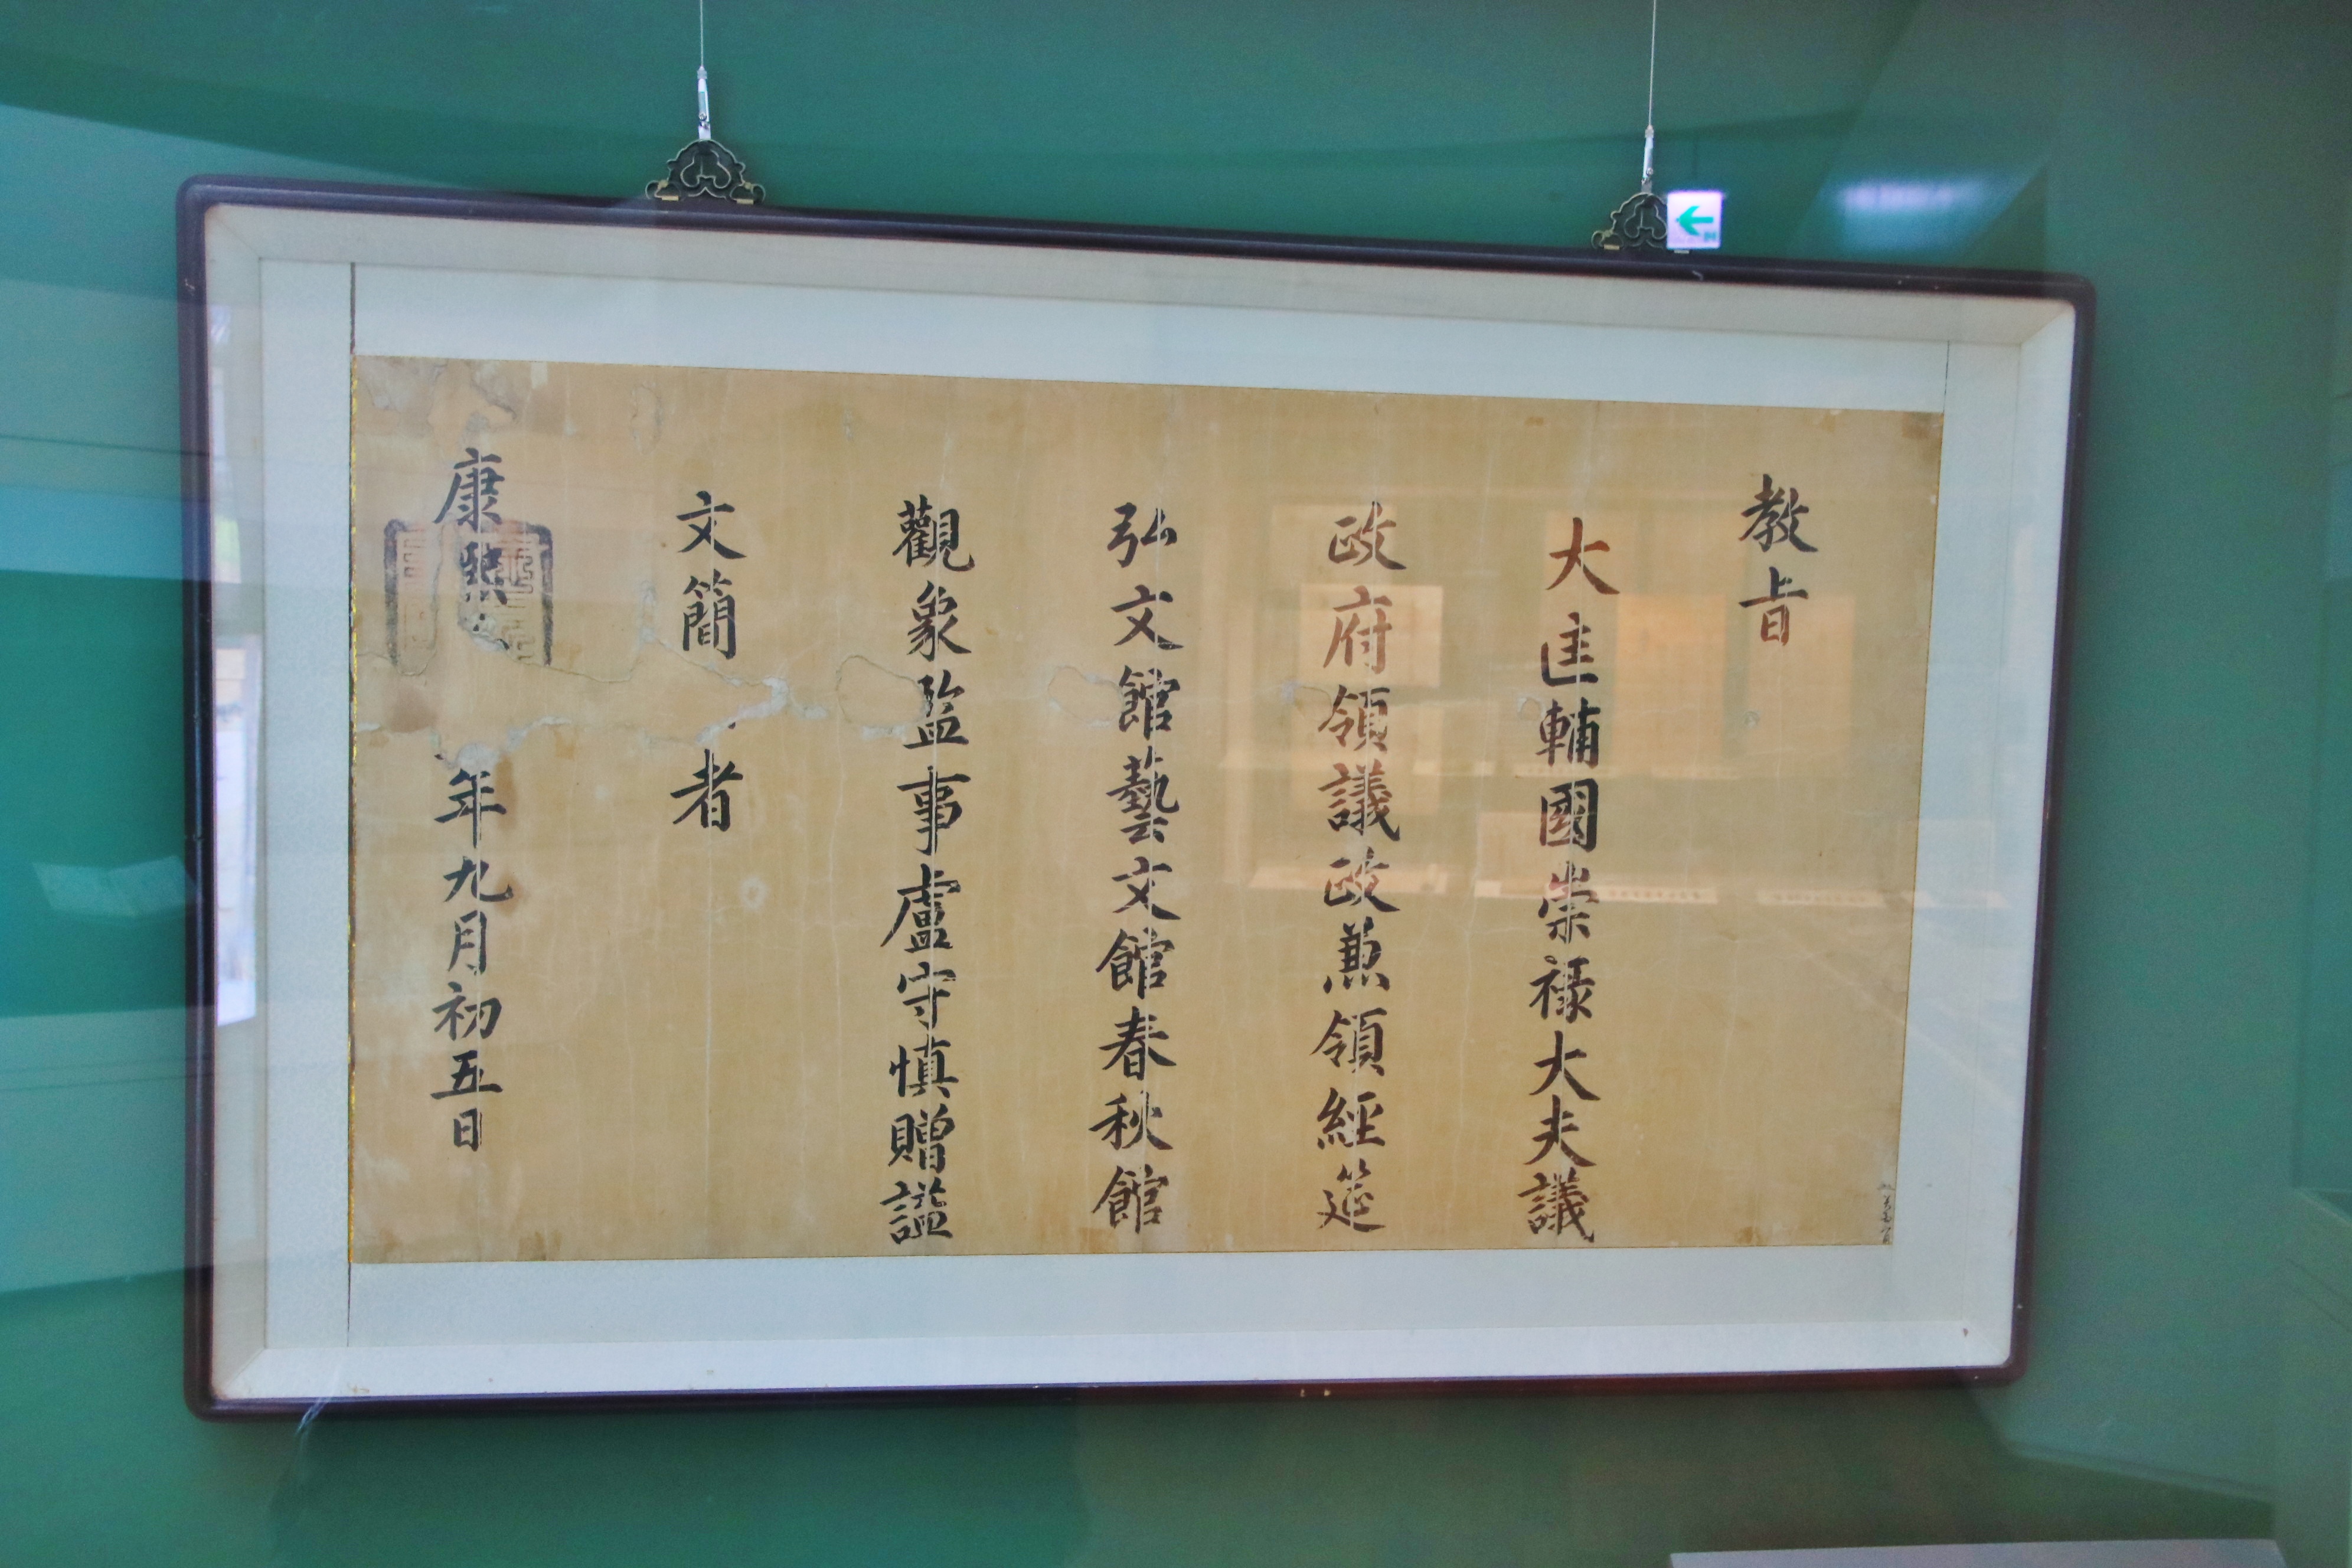 教旨
大匡輔國崇祿大夫議
政府領議政兼領經筵
弘文館藝文館春秋館
觀象監事盧守慎贈諡
文簡 者
康熙 年九月初五日